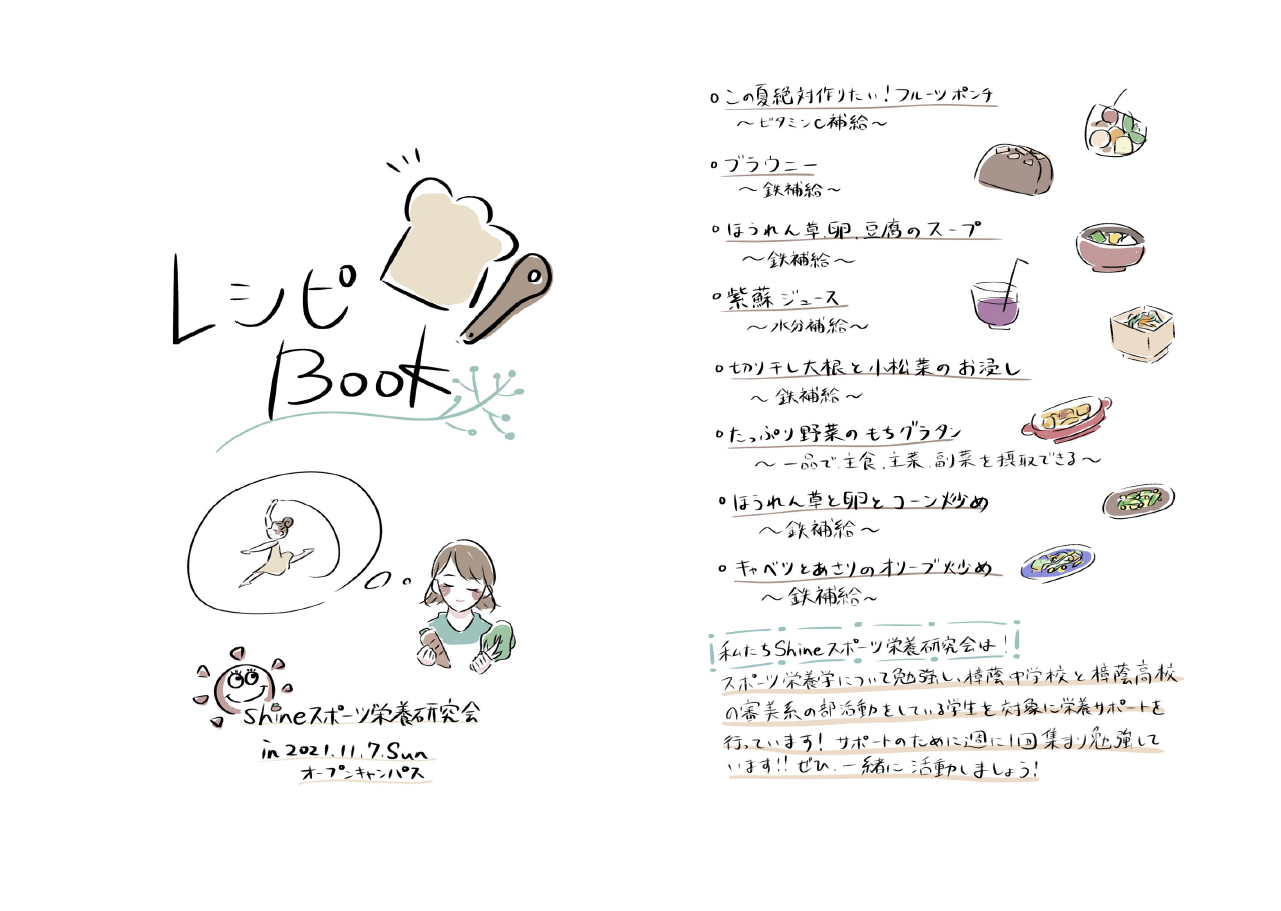 レシピ
Book
Shineスポーツ栄養研究会
in 2021.11.7.Sun
オープンキャンパス
○この夏絶対作りたい!フルーツポンチ
～ビタミンC補給～
○ブラウニー
～鉄補給～
○ほうれん草、卵、豆腐のスープ
～鉄補給～
○紫蘇ジュース
～水分補給～
○切り干し大根と小松菜のお浸し
～鉄補給～
○たっぷり野菜のもちグラタン
～一品で、主食、主菜、副菜を摂取できる～
○ほうれん草と卵とコーン炒め
～鉄補給～
○キャベツとあさりのオリーブ炒め
～鉄補給～
私たちShineスポーツ栄養研究会は!
スポーツ栄養学について勉強し、樟蔭中学校と樟蔭高校
の審美系の部活動をしている学生を対象に栄養サポートを
行っています!サポートのために週に1回集まり勉強して
います!!ぜひ、一緒に活動しましょう!